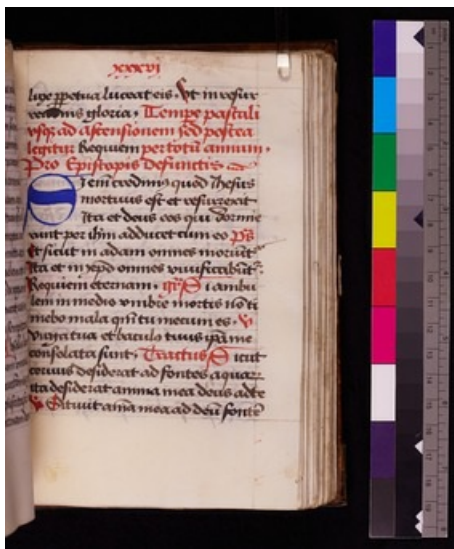 xxxvi
luxe ꝑpetua luceat eis. Vt in resur
rectionis gloria. Tempe pascali
vsq; ad ascensionem sed postea
legitur Requiem per totum annum.
Pro Epistapis defunctis
Si enim credimus quod Ihesus
mortuus est et resurrexit
Ita et deus eos qui dormie
runt per ihm adducet cum eo Ps
Et sicut in adam omnes moriunt
Ita et in xpo omnes viuificabunt.
Requiem eternam. Si ambu
lem in medio vmbre mortis no ti
mebo mala qm tu mecum es. V
Virga tua et baculus tuus ipa me
consolata sunt. Tractus Sicut
ceruus desiderat ad fontes aquar
ita desiderat anima mea deus ad te
V Sitiuit aia mea ad deu fonte